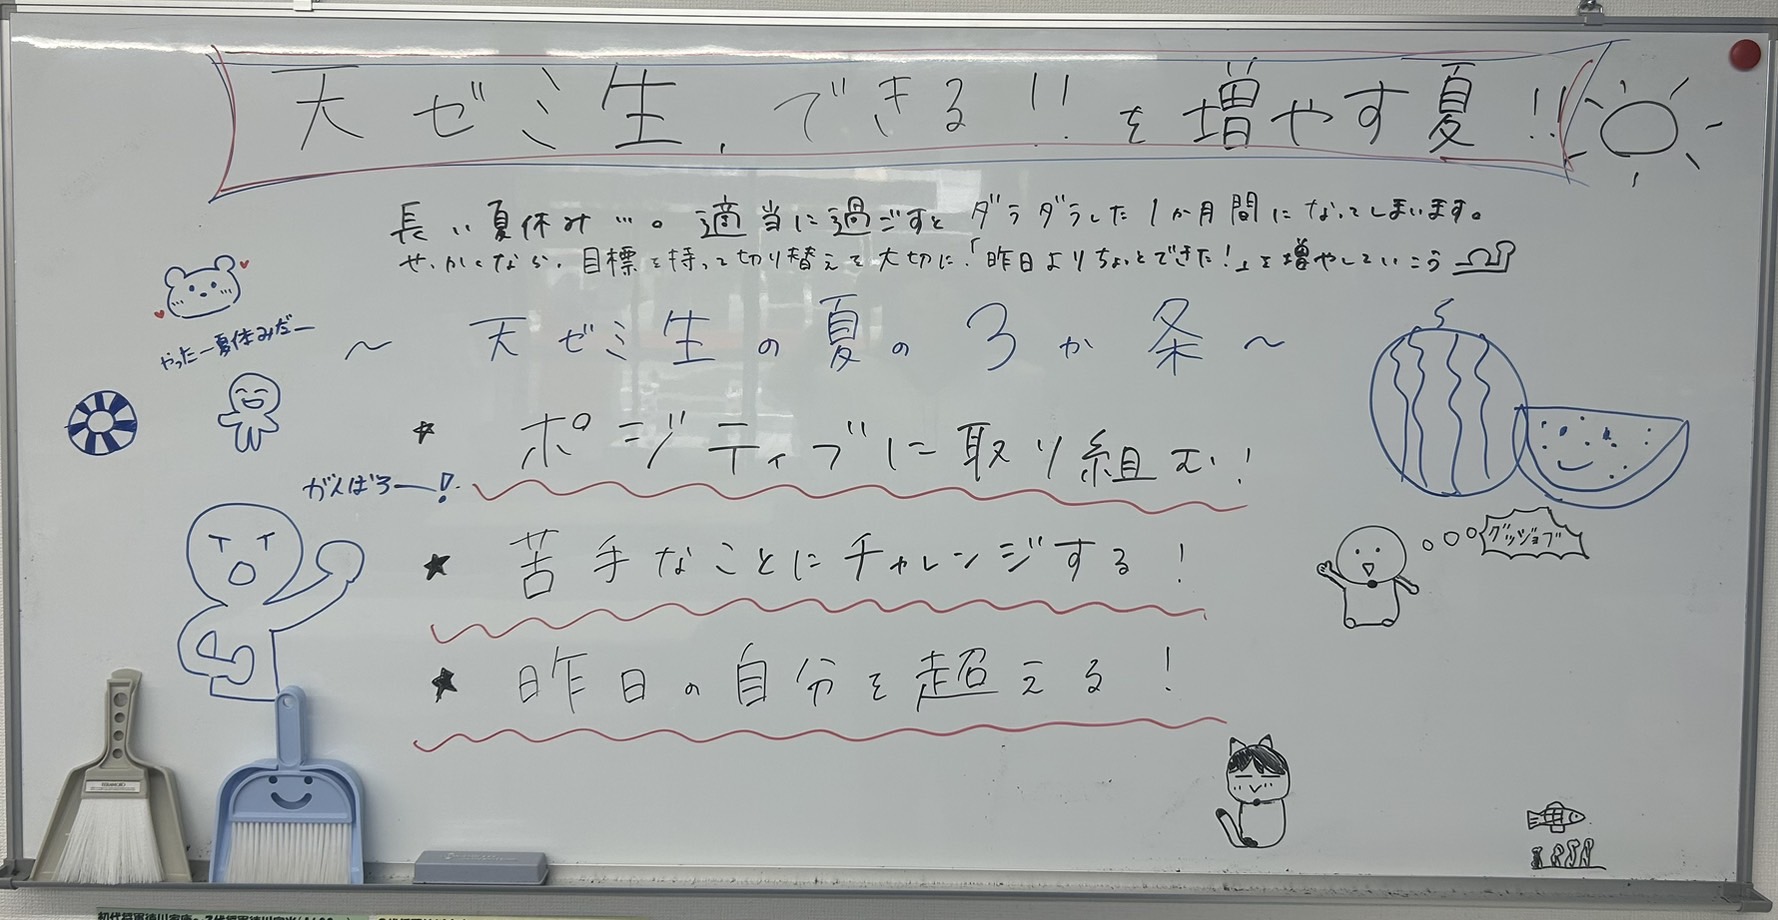 天ゼミ生、できる!!を増やす夏!!
長い夏休み…。適当に過ごすとダラダラした1か月間になってしまいます。
せっかくなら、目標を持って切り替えを大切に、「昨日よりちょっとできた!」を増やしていこう
やったー夏休みだー
〜天ゼミ生の夏の3か条〜
★ポジティブに取り組む!
がんばろー!
グッジョブ
★苦手なことにチャレンジする!
★昨日の自分を超える!